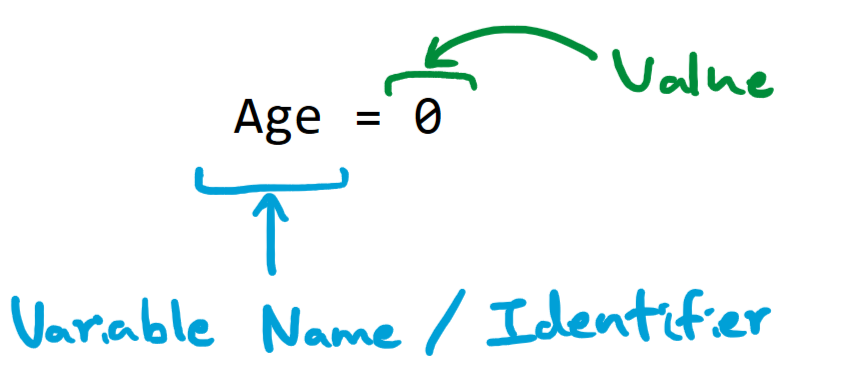 Value
Age = 0
Variable Name / Identifier